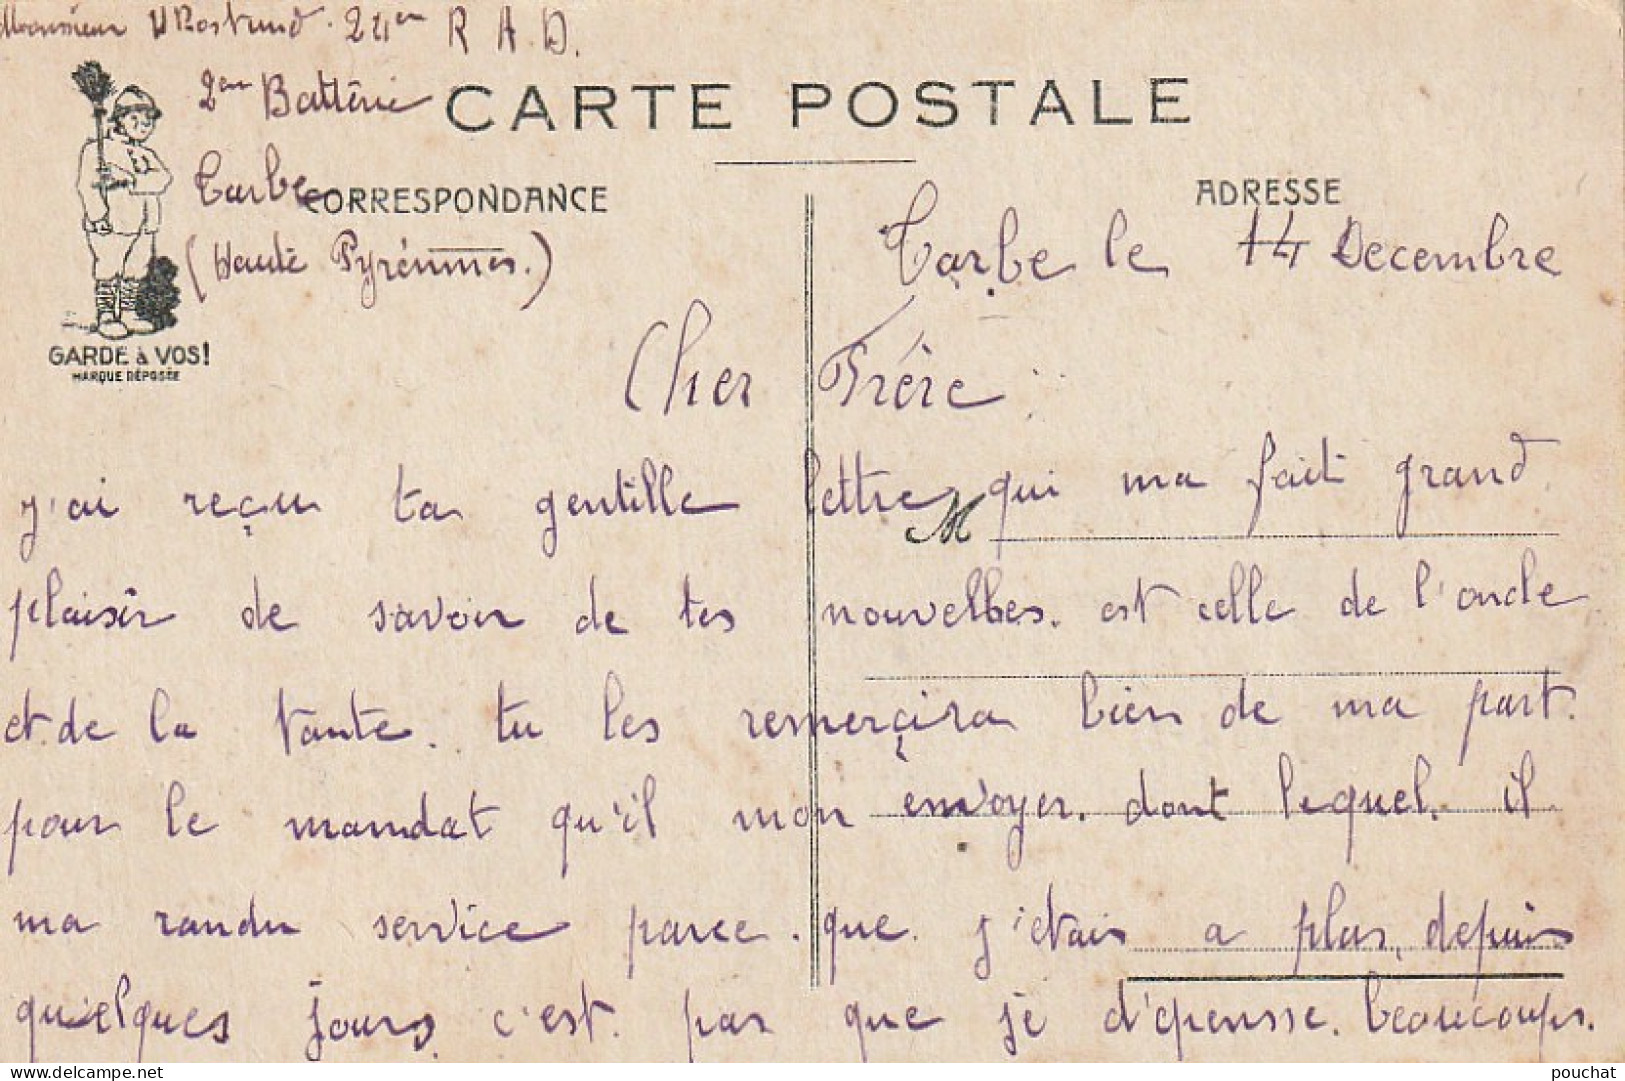 Monsieur 24em R A D.
2em Batterie
CARTE POSTALE
Tarbe
CORRESPONDANCE
ADRESSE
(Haute Pyrénnés.)
Tarbe le 14 Decembre
GARDE à VOS!
MARQUE DÉPOSÉE
Cher Frére
j'ai reçu ta gentille lettre qui ma fait grand
M
plaisir de savoir de tes nouvelles. est celle de l'oncle
et de la tante. tu les remerçira bien de ma part.
pour le mandat qu'il mon envoyer. dont lequel. il
ma randu service parce que j'etais a plas, depuis
quelques jours c'est pas que je d'épensse. beaucoups.
pouchat